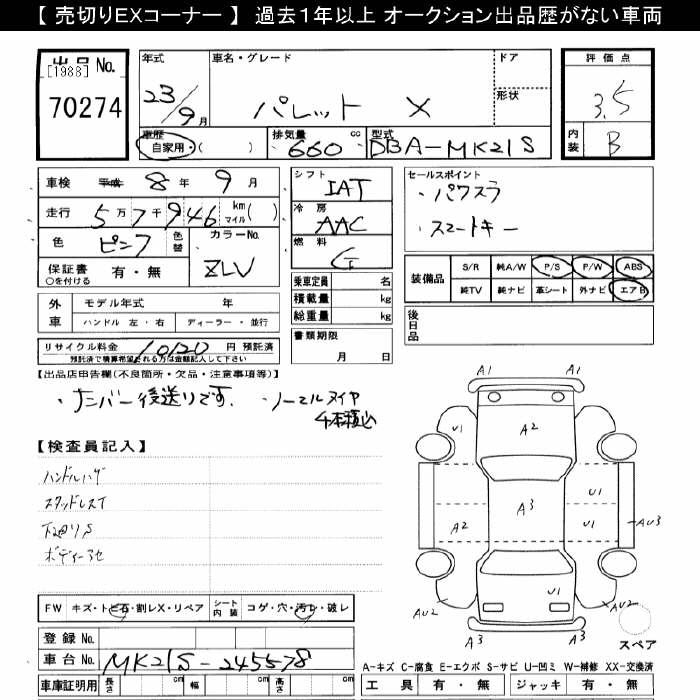 【 売切りEXコーナー 】 過去1年以上 オークション出品歴がない車両
出品 No.
[1988]
70274
年式
23/9月
車名・グレード
パレット X
ドア
形状
評価点
3.5
内装
B
車歴
自家用・( )
排気量
660 cc
型式
DBA-MK21S
車検 平成 8年 9月
走行 5万7千946 km マイル ( )
色 ピンク
色替
カラーNo.
ZLV
保証書 有・無
○を付ける
外車
モデル年式 年
ハンドル 左・右 ディーラー・並行
リサイクル料金 10120 円 預託済
預託済で精算希望される方は金額記入して下さい
シフト
IAT
冷房
AAC
燃料
G
乗車定員 名
積載量 kg
総重量 kg
書類期限
月 日
セールスポイント
・パワスラ
・スマートキー
装備品
S/R 純A/W P/S P/W ABS
純TV 純ナビ 革シート 外ナビ エアB
後日品
【出品店申告欄(不良箇所・欠品・注意事項等)】
・ナンバー後送りです. ・ノーマルタイヤ
4本積込
【検査員記入】
ハンドルハゲ
スタッドレスT
下廻りS
FW キズ・トビ石・割レX・リペア
シート内装 コゲ・穴・汚レ・破レ
登録 No.
車台 No. MK21S-245578
車庫証明用 長さ cm 幅 cm 高さ cm
A1 A1
U1 A2
A3
A2 U1
U1 AU3
U1
AU2 AU2
A3 A3
スペア
A-キズ C-腐食 E-エクボ S-サビ U-凹ミ W-補修 XX-交換済
工具 有・無 ジャッキ 有・無